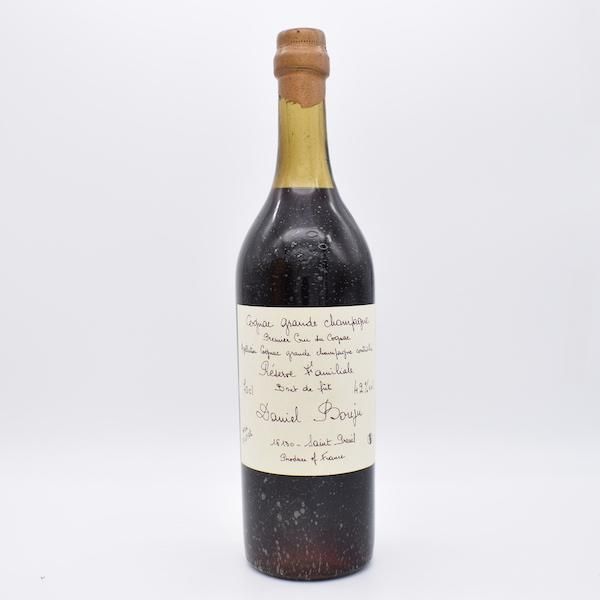 Cognac grande champagne
Premier Cru du Cognac
Appellation Cognac grande champagne contrôlée
Réserve Familiale
70cl Brut de fût 42% vol
Daniel Bouju
16130 - Saint Preuil
Produce of France